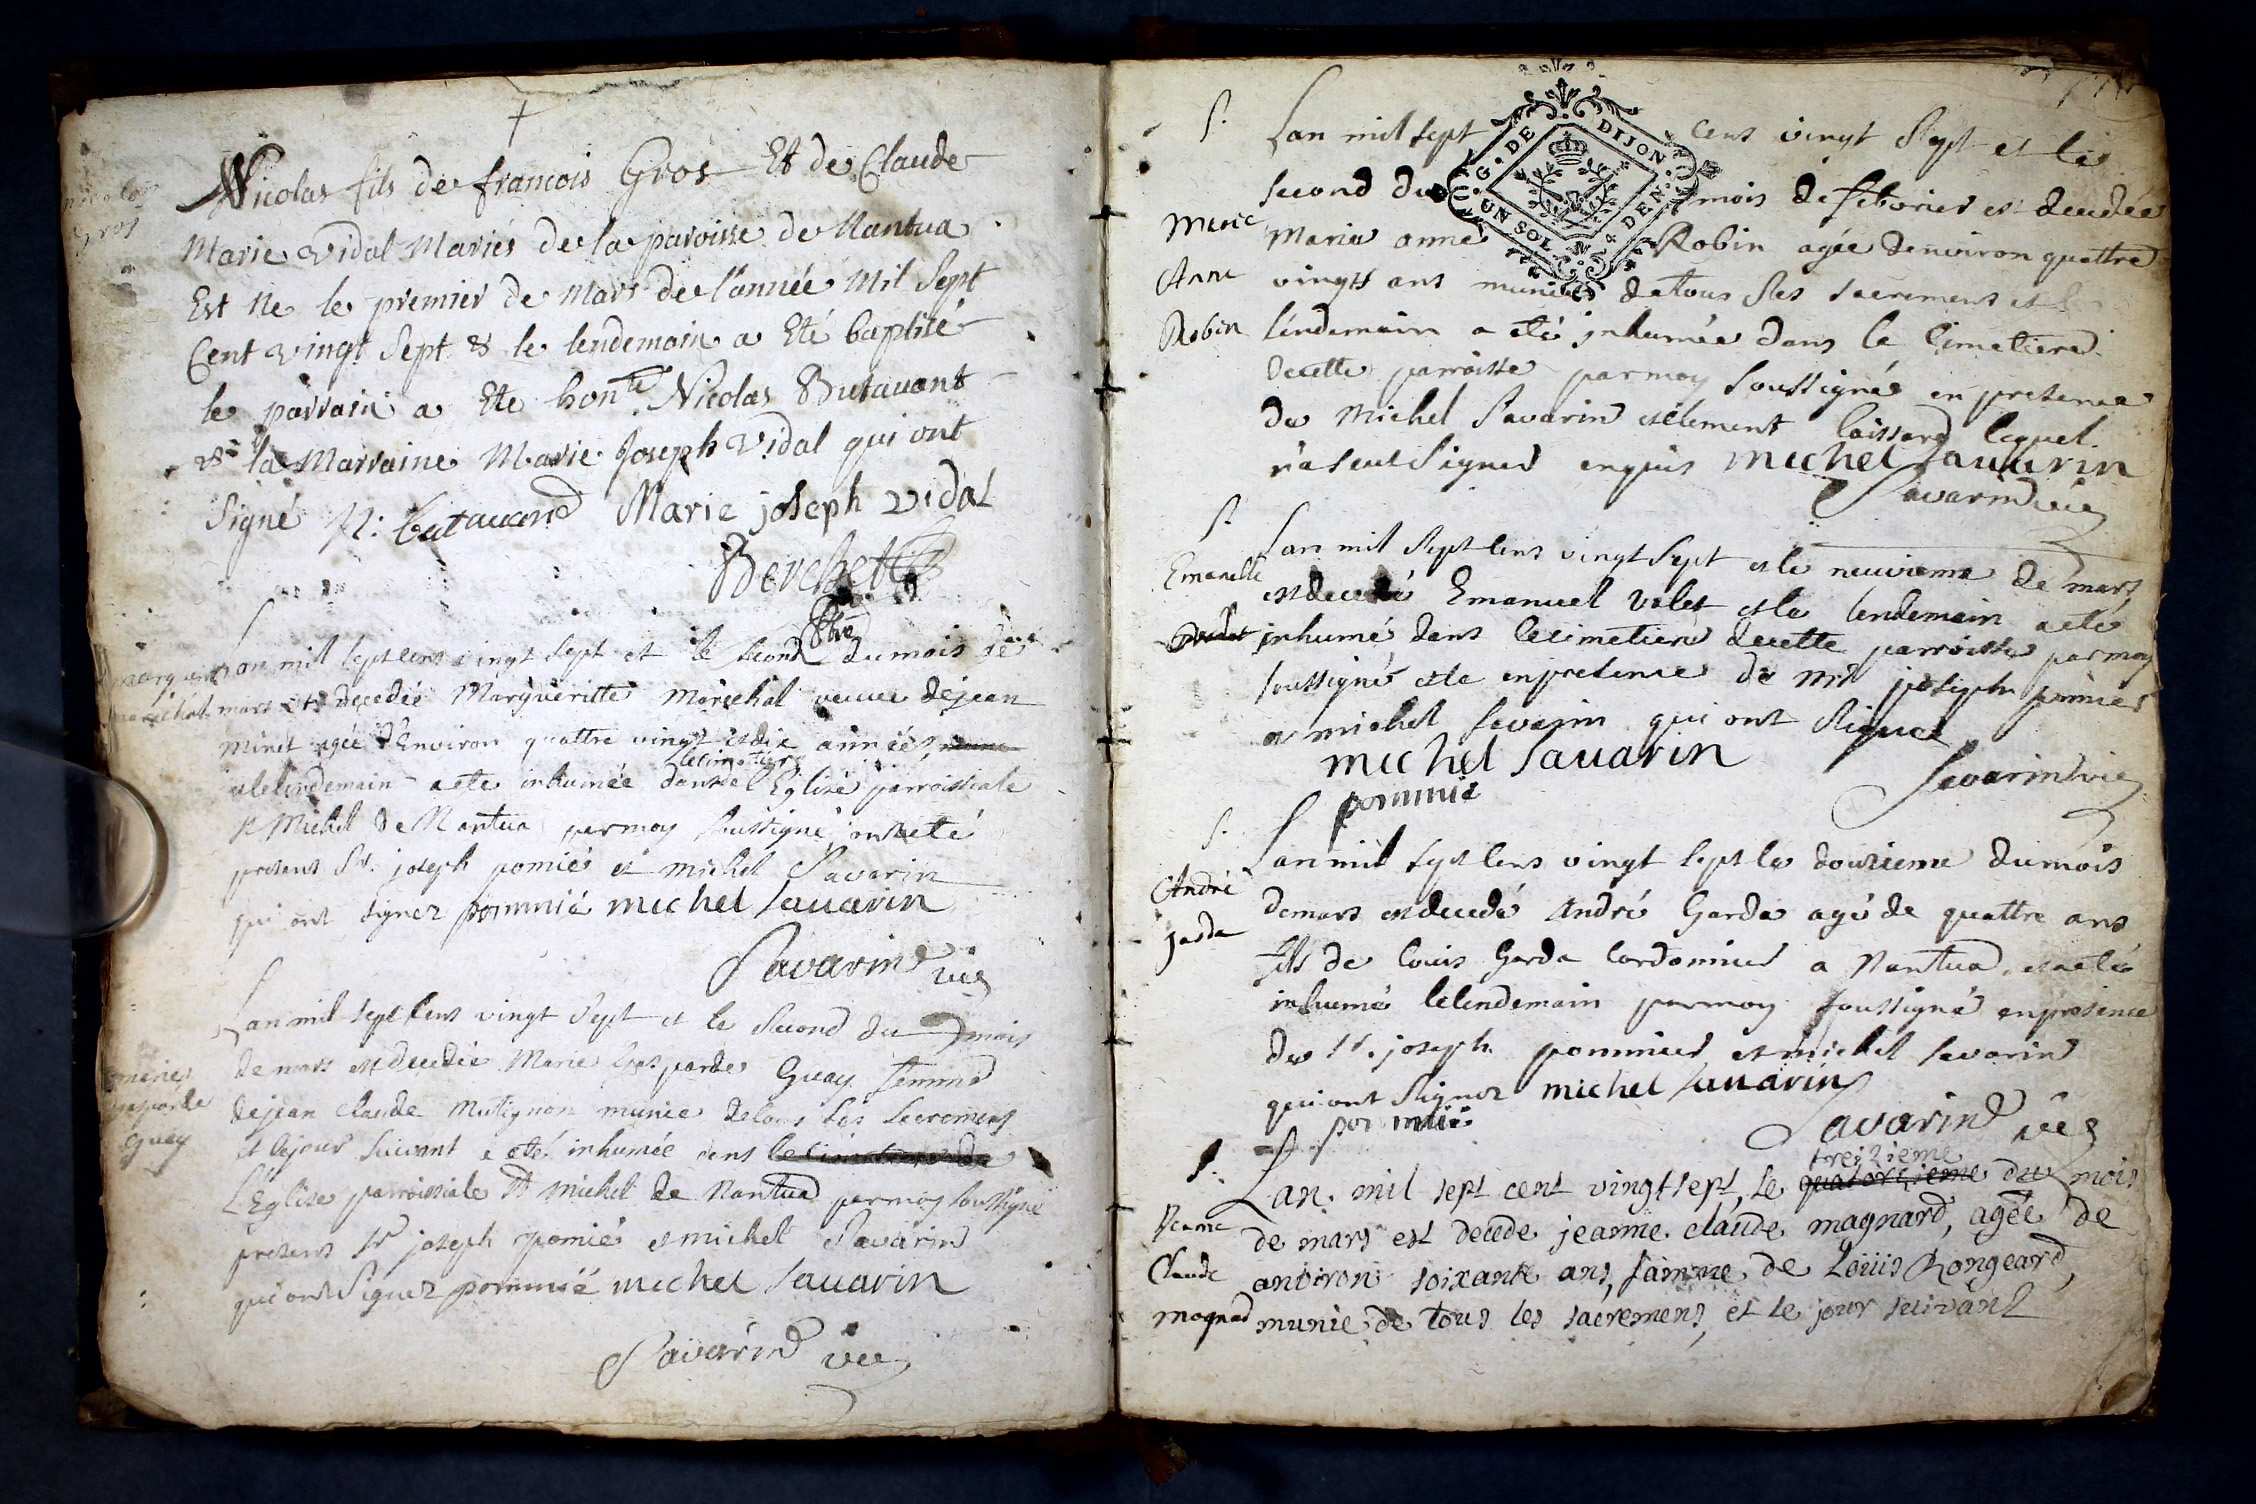 nicolas
Gros
Nicolas fils de francois Gros Et de Claude
Marie Vidal Mariés de la paroisse de Nantua
Est Ne le premier de Mars de l'année Mil Sept
Cent Vingt Sept & le lendemain a Eté baptisé
le parrain a Ete honte. Nicolas Butavant
& la Marraine Marie Joseph Vidal qui ont
Signé N: butauand Marie joseph vidal
Berchet
ptre
marguerite
marechal
Lan mil sept cens vingt sept et le second du mois de
mars est decedée Margueritte Marechal veuve de jean
Minet agée d'Environ quattre vingt et dix années
le cimetiere
et le lendemain a eté inhumée dans l'Eglise parroissiale
St Michel de Nantua par moy soussigné, ont eté
presens Sr. joseph pomié et michel Savarin
qui ont signez pommié michel sauarin
Savarin vic
marie
gasparde
guay
Lan mil sept cens vingt sept et le second du mois
de mars est decedée Marie gasparde Guay femme
de jean claude Mutignon munie de tous les sacremens
et le jour suivant a eté inhumée dans le cimetiere de
L'Eglise parroissiale St michel de Nantua par moy soussigné
presens sr joseph pomié et michel Savarin
qui ont Signez pommié michel sauarin
Savarin vic
S.
Marie
Anne
Robin
Lan mil sept cens vingt sept et le
G. DE DIJON
UN SOL 4 DEN.
second du mois de febvrier est decedée
Marie anne Robin agée d'environ quattre
vingts ans munie de tous les sacremens et le
lendemain a eté inhumée dans le Cimetiere
de cette parroisse par moy soussigné en presence
de Michel Savarin et clement laissard lequel
n'a seut signer enquis michel sauarin
Savarin vic
S.
Emanelle
Lan mil sept cens vingt sept et le neuvieme de mars
est decedé Emanuel Valet et le lendemain a eté
inhumé dans le cimetiere de cette parroisse par moy
soussigné et ce en presence de Mr joseph pomier
et michel savarin qui ont signez
michel sauarin
pommié
Savarin vic
S.
André
garda
Lan mil sept cens vingt sept le douzieme du mois
de mars est decedé André Garda agé de quattre ans
fils de Louis Garda Cordonnier a Nantua, et a eté
inhumé le lendemain par moy soussigné en presence
de sr. joseph pommier et michel savarin
qui ont signez michel sauarin
pommié
Savarin vic
S.
Jeanne
Claude
magnad
treizieme
Lan mil sept cent vingt sept, le quatorzieme du mois
de mars est decede jeanne claude magnard, agée de
anviron soixante ans, famme de Loüis Rongeard,
munie de tous les sacremens, et le jour suivant